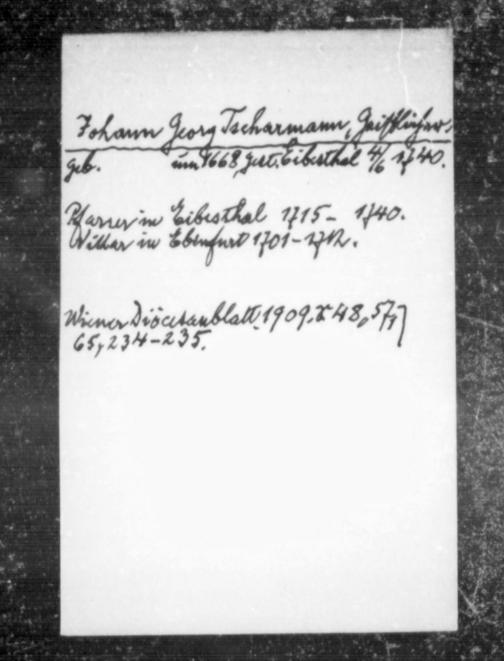 Johann Georg Tscharmann, Geistlicher.
geb. um 1668, gest. Eibesthal 4/6 1740.
Pfarrer in Eibesthal 1715 – 1740.
Vikar in Ebenfurt 1701 – 1712.
Wiener Diöcesanblatt. 1909. 48, 57,
65, 234 – 235.